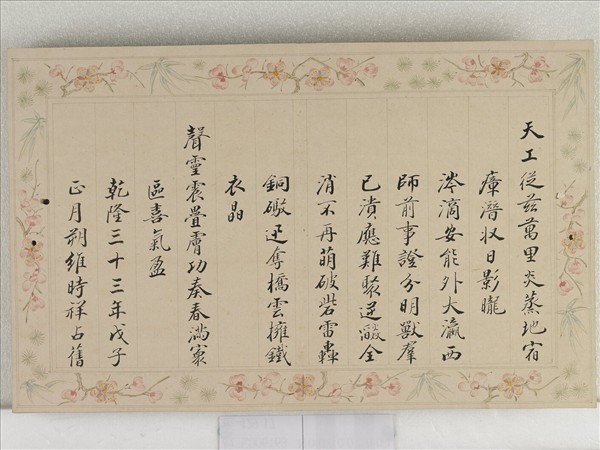 天工從茲萬里炎蒸地宿
瘴潛収日影曨
涔滴安能外大瀛西
師前事證分明獸羣
已潰應難聚逆燄全
消不再萌破砦雷轟
銅礮迅奪橋雲擁鐵
衣晶
聲靈震疊膚功奏春滿寰
區喜氣盈
乾隆三十三年戊子
正月朔維時祥占舊